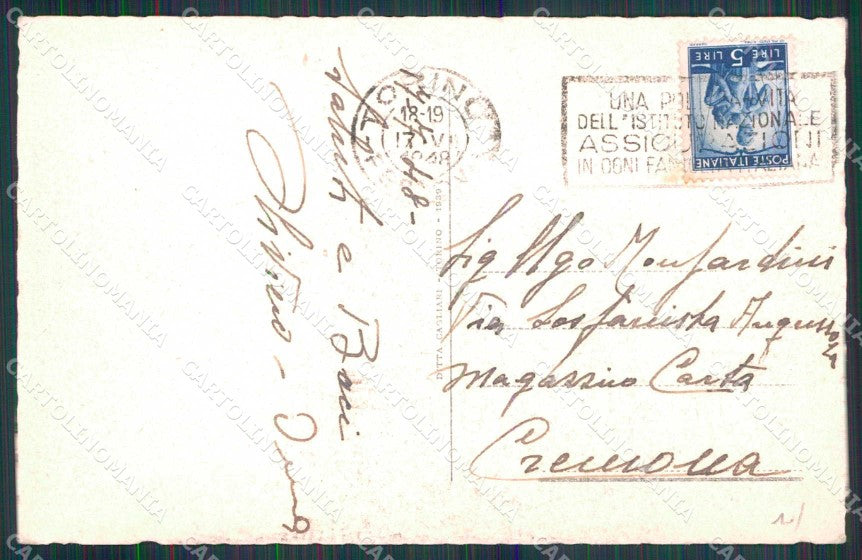 17-6-48-
saluti e Baci
TORINO
18-19
17 VI
1948
5 LIRE
POSTE ITALIANE
UNA POLIZZA VITA
DELL'ISTITUTO NAZIONALE
ASSICURAZIONI
IN OGNI FAMIGLIA ITALIANA
DITTA CAGLIANI - TORINO - 1939
Sig Ugo Monfardini
Via Sofonisba Anguissola
Magazzino Carta
Cremona
CARTOLINOMANIA